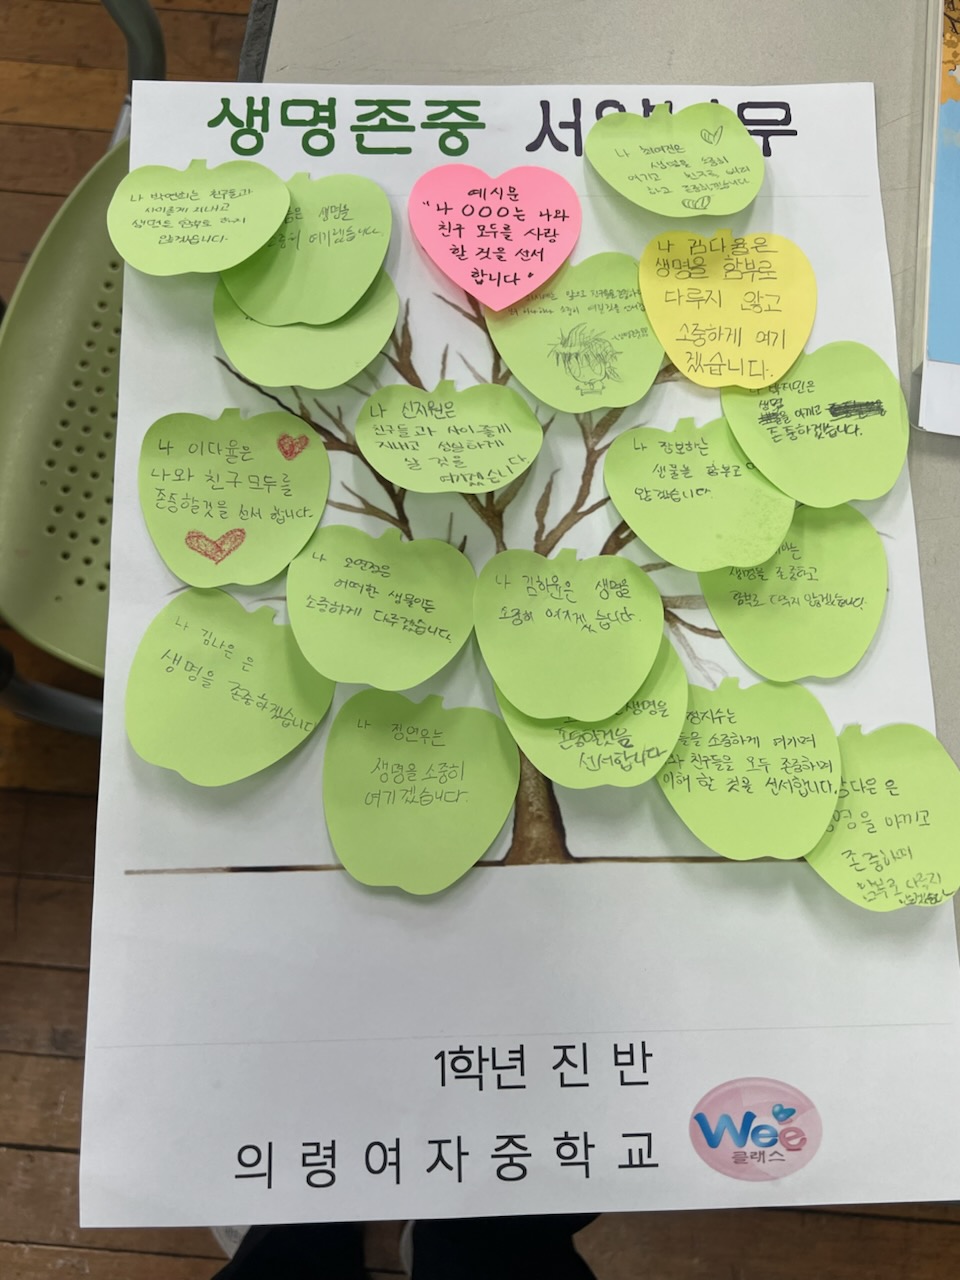 생명존중 서 무
나 박연희는 친구들과
사이좋게 지내고
생명을 함부로 하지
않겠습니다.
생명을
소중히 여기겠습니다.
예시문
"나 OOO는 나와
친구 모두를 사랑
할 것을 선서
합니다"
나 최여진은
생명을 소중히
여기고 친구를
하고 존중하겠습니다
나 김다율은
생명을 함부로
다루지 않고
소중하게 여기
겠습니다.
나 신지원은
친구들과 사이좋게
지내고 성실하게
살 것을
여기겠습니다.
나 박지민은
생명을 아끼고
존중하겠습니다.
나 이다율은
나와 친구 모두를
존중할것을 선서 합니다.
나 장보하는
생물을 함부로
않겠습니다.
나 오연정은
어떠한 생물이든
소중하게 다루겠습니다.
나 김하윤은 생명을
소중히 여기겠습니다.
생명을 존중하고
함부로 다루지 않겠습니다.
나 김나은 은
생명을 존중하겠습니다
나 정연우는
생명을 소중히
여기겠습니다.
생명을
존중할것을
선서합니다
정지수는
들을 소중하게 여기며
와 친구들을 모두 존중하며
이해 할 것을 선서합니다.
다은 은
아끼고
존중하며
함부로 다루지
않겠습니다
1학년 진 반
의 령 여 자 중 학 교
Wee
클래스